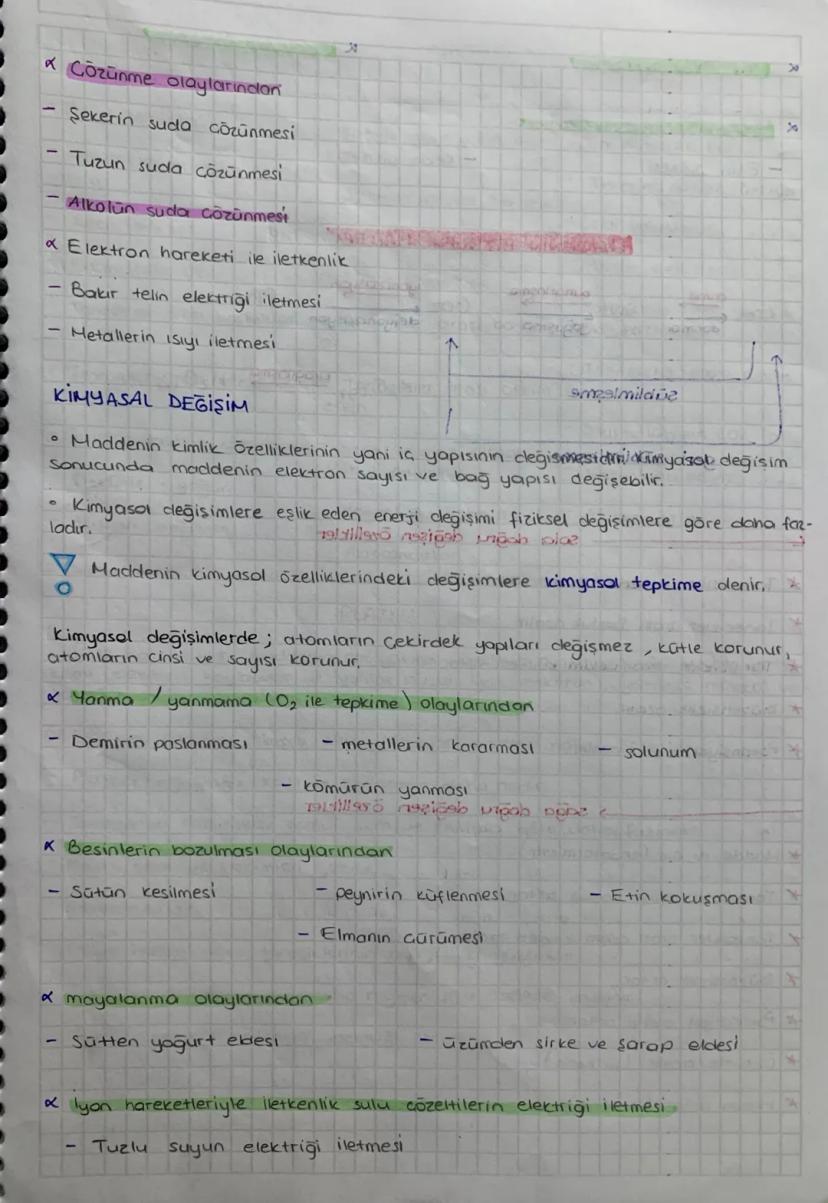 ∝ Çözünme olaylarından
- Şekerin suda çözünmesi
- Tuzun suda çözünmesi
- Alkolün suda çözünmesi
∝ Elektron hareketi ile iletkenlik
- Bakır telin elektriği iletmesi
- Metallerin ısıyı iletmesi
KİMYASAL DEĞİŞİM
° Maddenin kimlik özelliklerinin yani iç yapısının değişmesidir. Kimyasal değişim
sonucunda maddenin elektron sayısı ve bağ yapısı değişebilir.
° Kimyasal değişimlere eşlik eden enerji değişimi fiziksel değişimlere göre daha faz-
ladır.
Maddenin kimyasal özelliklerindeki değişimlere kimyasal tepkime denir.
Kimyasal değişimlerde; atomların çekirdek yapıları değişmez, kütle korunur,
atomların cinsi ve sayısı korunur.
∝ Yanma / yanmama (O₂ ile tepkime) olaylarından
- Demirin paslanması - metallerin kararması - solunum
- kömürün yanması
∝ Besinlerin bozulması olaylarından
- Sütün kesilmesi - peynirin küflenmesi - Etin kokuşması
- Elmanın çürümesi
∝ mayalanma olaylarından
- Sütten yoğurt eldesi - üzümden sirke ve şarap eldesi
∝ İyon hareketleriyle iletkenlik sulu çözeltilerin elektriği iletmesi
- Tuzlu suyun elektriği iletmesi